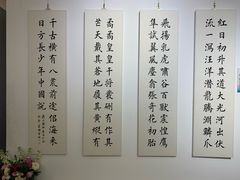 紅日初升其道大光河出伏
流一瀉汪洋潛龍騰淵鱗爪
飛揚乳虎嘯谷百獸震惶鷹
隼試翼風塵翕張奇花初胎
矞矞皇皇干將發硎有作其
芒天戴其蒼地履其黃縱有
千古橫有八荒前途似海來
日方長少年中國說